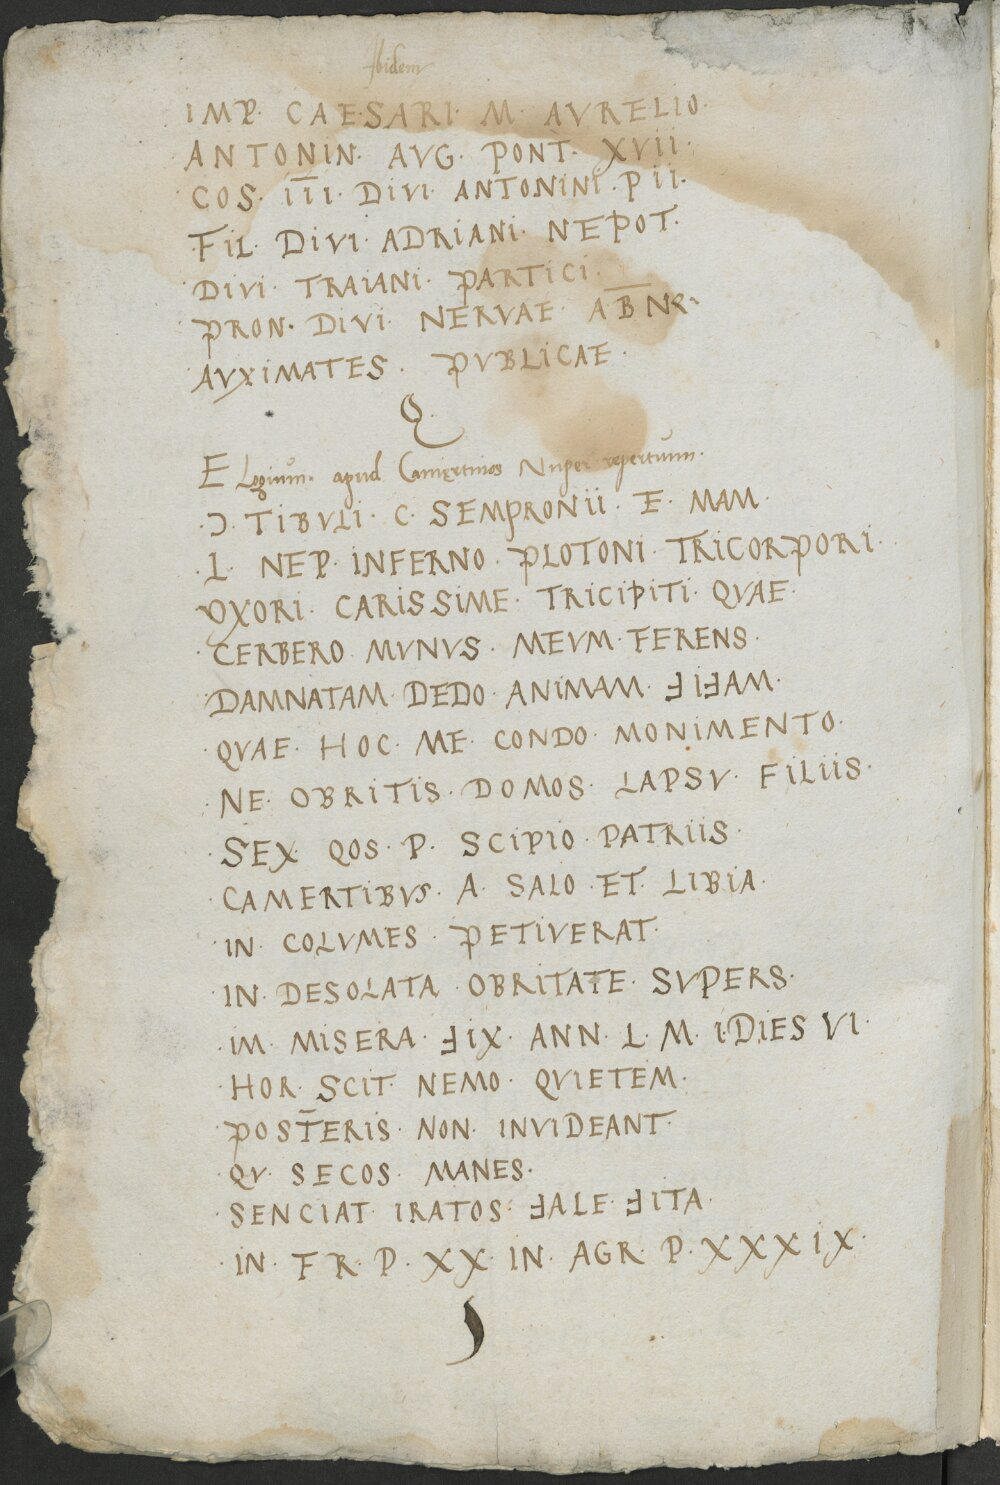 Ibidem
IMP. CAESARI. M. AVRELIO.
ANTONIN. AVG. PONT. XVII.
COS. III. DIVI. ANTONINI. PII.
FIL. DIVI. ADRIANI. NEPOT.
DIVI. TRAIANI. PARTICI.
PRON. DIVI. NERVAE. ABNR.
AVXIMATES. PVBLICAE.
ELogium. apud Camęrtinos Nuper repertuum.
.Ɔ. TIBVLI. C. SEMPRONII. E. MAM.
.L. NEP. INFERNO. PLOTONI. TRICORPORI.
VXORI. CARISSIME. TRICIPITI. QVAE.
CERBERO. MVNVS. MEVM. FERENS.
DAMNATAM. DEDO. ANIMAM. ℲIℲAM.
QVAE. HOC. ME. CONDO. MONIMENTO.
NE. OBRITIS. DOMOS. LAPSV. FILIIS.
SEX. QOS. P. SCIPIO. PATRIIS.
CAMERTIBVS. A. SALO. ET. LIBIA.
IN. COLVMES. PETIVERAT.
IN. DESOLATA. OBRITATE. SVPERS.
IM. MISERA. ℲIX. ANN. L. M. I. DIES VI.
HOR. SCIT. NEMO. QVIETEM.
POST̄ERIS. NON. INVIDEANT.
QV. SECOS. MANES.
SENCIAT. IRATOS. ℲALE. ℲITA.
IN. FR. P. XX. IN. AGR. P. XXXIX.